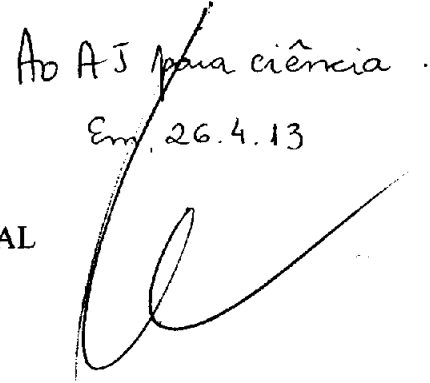 Ao AJ para ciência.
Em, 26.4.13
AL